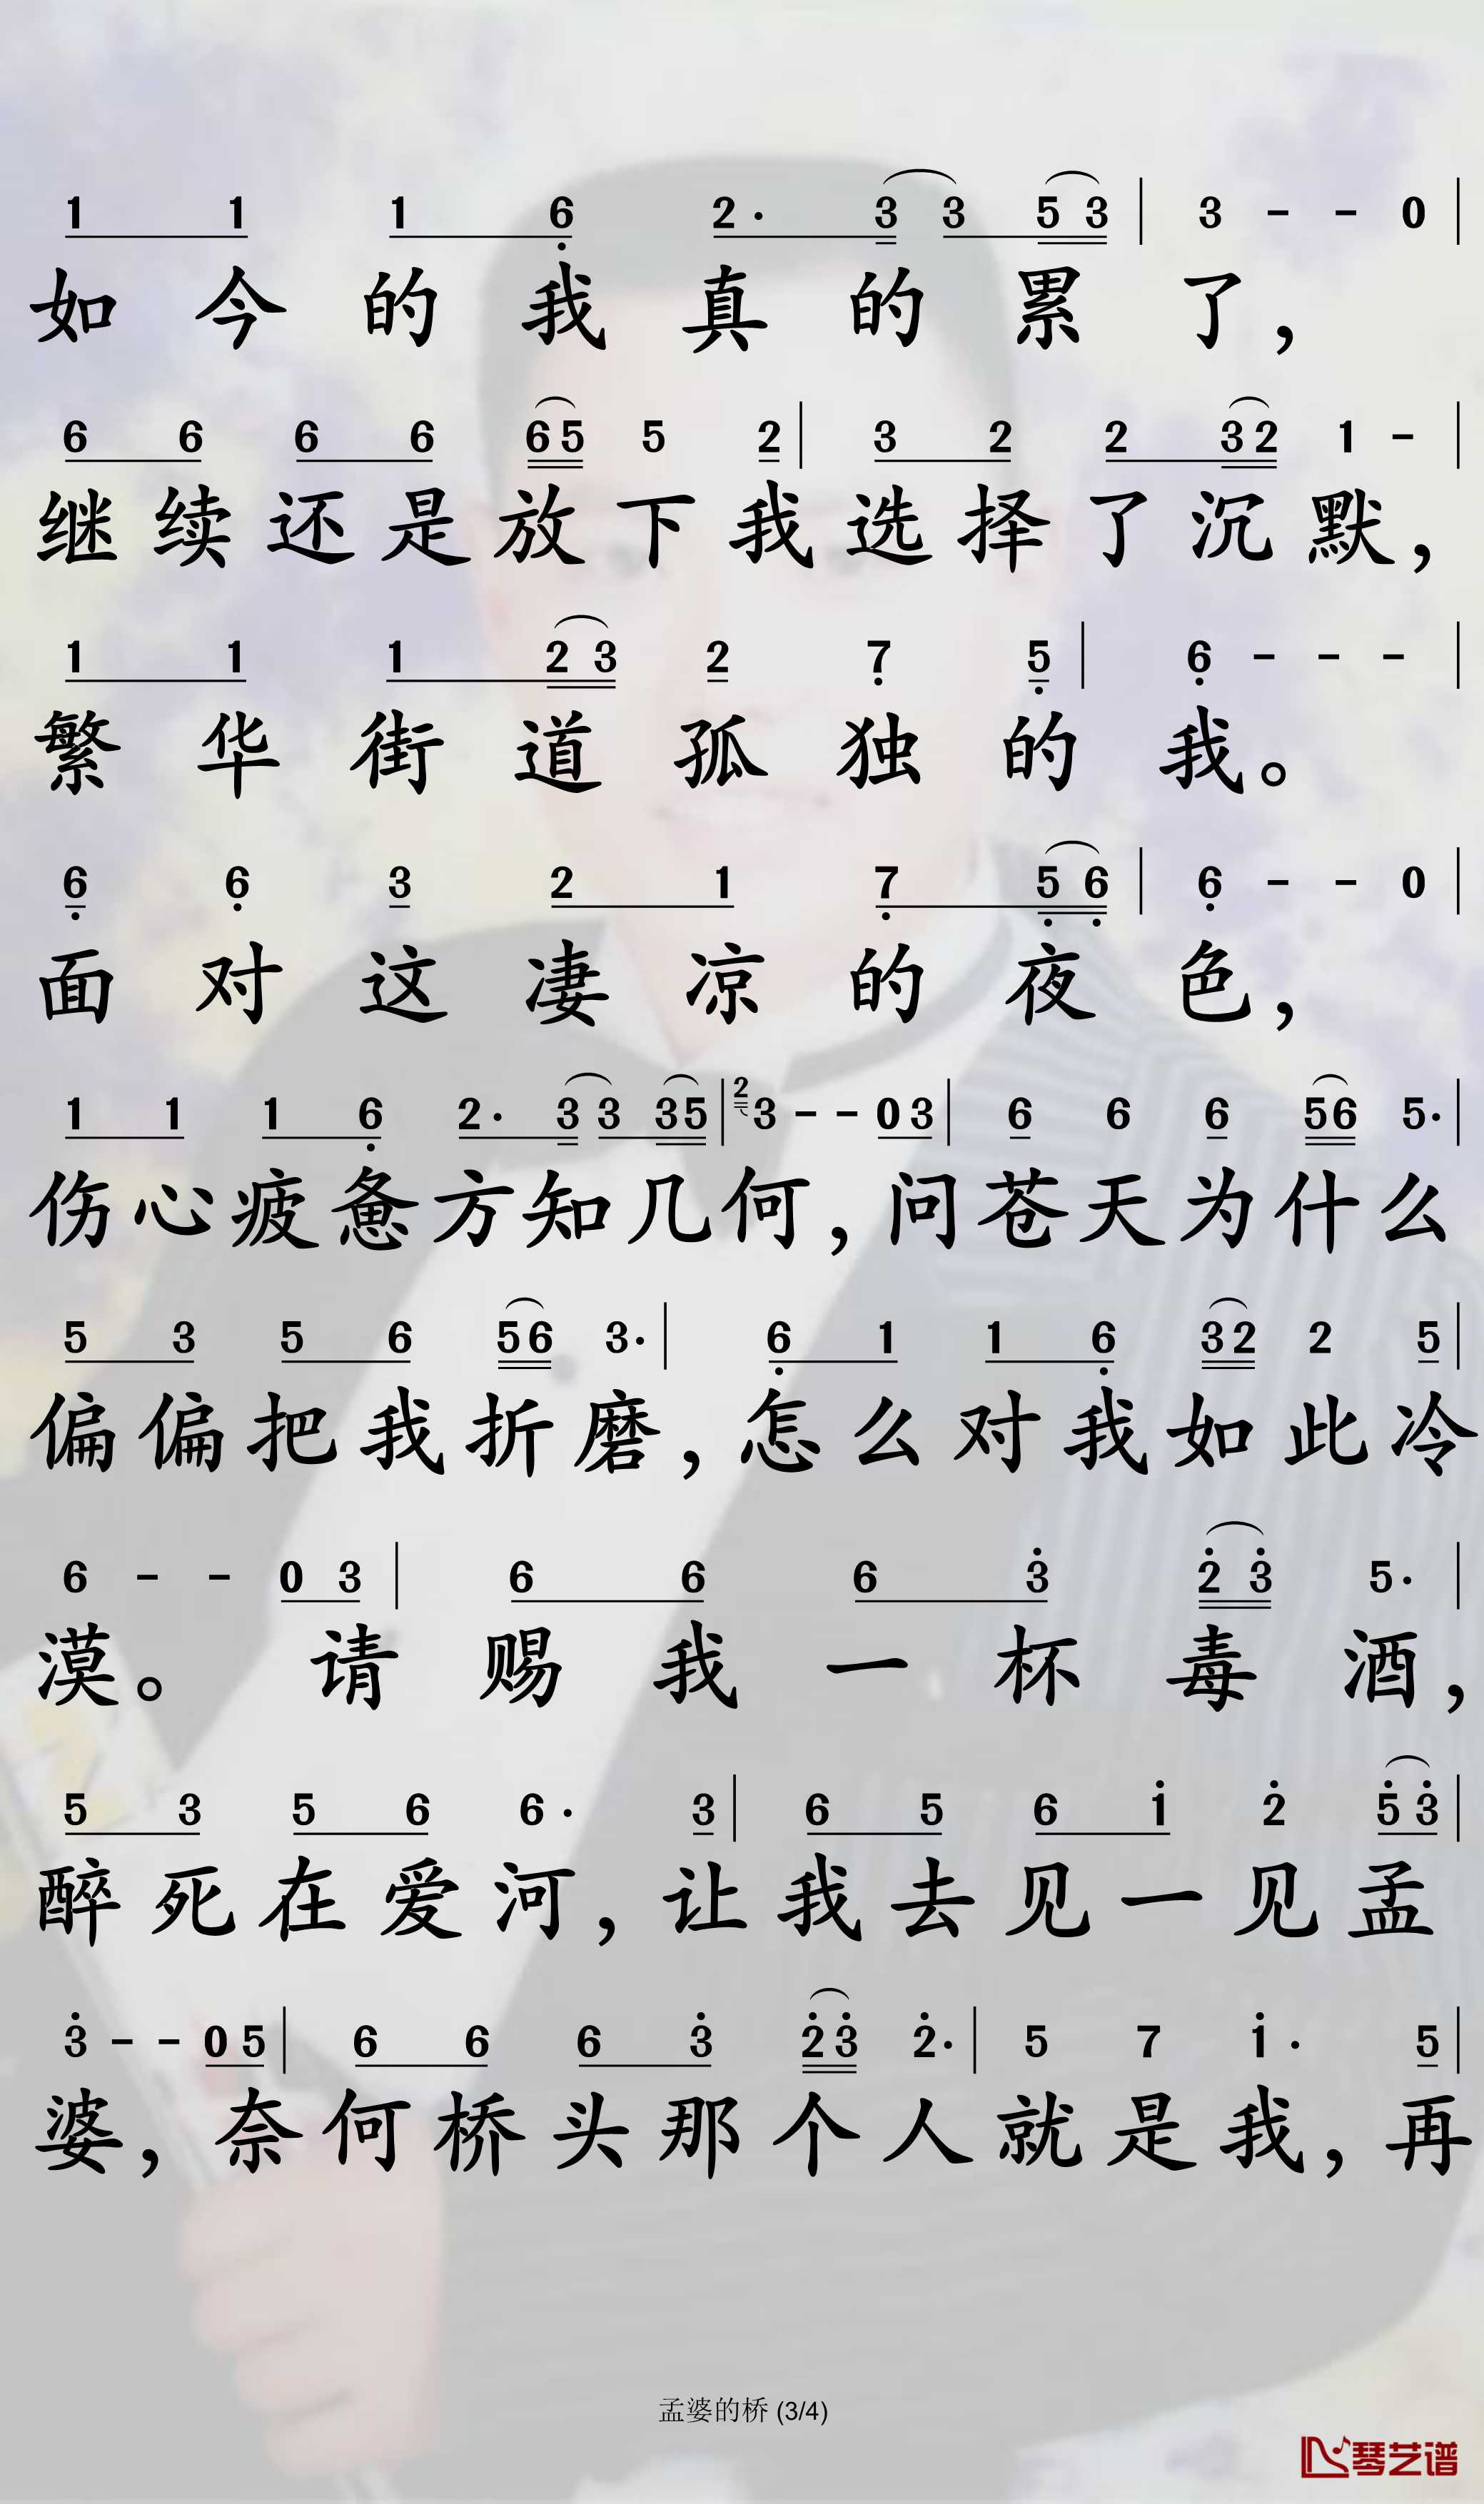 1 1 1 6 2· 3 3 5 3 | 3 - - 0 |
如今的我真的累了，
6 6 6 6 6 5 5 2 | 3 2 2 3 2 1 - |
继续还是放下我选择了沉默，
1 1 1 2 3 2 7 5 | 6 - - - |
繁华街道孤独的我。
6 6 3 2 1 7 5 6 | 6 - - 0 |
面对这凄凉的夜色，
1 1 1 6 2· 3 3 3 5 | 2 3 - - 0 3 | 6 6 6 5 6 5· |
伤心疲惫方知几何，问苍天为什么
5 3 5 6 5 6 3· | 6 1 1 6 3 2 2 5 |
偏偏把我折磨，怎么对我如此冷
6 - - 0 3 | 6 6 6 3 2 3 5· |
漠。请赐我一杯毒酒，
5 3 5 6 6· 3 | 6 5 6 1 2 5 3 |
醉死在爱河，让我去见一见孟
3 - - 0 5 | 6 6 6 3 2 3 2· | 5 7 1· 5 |
婆，奈何桥头那个人就是我，再
孟婆的桥 (3/4)
琴艺谱